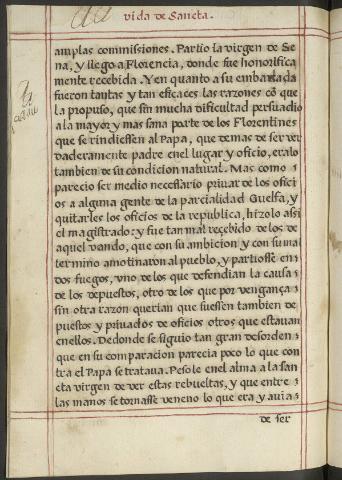 vida de Sancta.
amplas commissiones. Partio la virgen de Se
na, y llego a Florencia, donde fue honorifica
mente recebida. Y en quanto a su embaxada
fueron tantas y tan eficaces las razones cõ que
la propuso, que sin mucha dificultad persuadio
a la mayor y mas sana parte de los Florentines
que se rindiessen al Papa, que demas de ser ver
daderamente padre en el lugar y oficio, eralo
tambien de su condicion natural. Mas como
parecio ser medio necessario priuar de los ofici
os a alguna gente de la parcialidad Guelfa, y
quitarles los oficios de la republica, hizolo assi
el magistrado: y fue tan mal reçebido de los de
aquel vando, que con su ambicion y con su mal
termino amotinaron al pueblo, y partiosse en
dos fuegos, vno de los que defendian la causa
de los depuestos, otro de los que por vengança
sin otra razon querian que fuessen tambien de
puestos y priuados de oficios otros que estauan
en ellos. De donde se siguio tan gran desorden
que en su comparacion parecia poco lo que con
tra el Papa se trataua. Pesole en el alma a la san
cta virgen de ver estas rebueltas, y que entre
las manos se tornasse veneno lo que era y auia
de ser